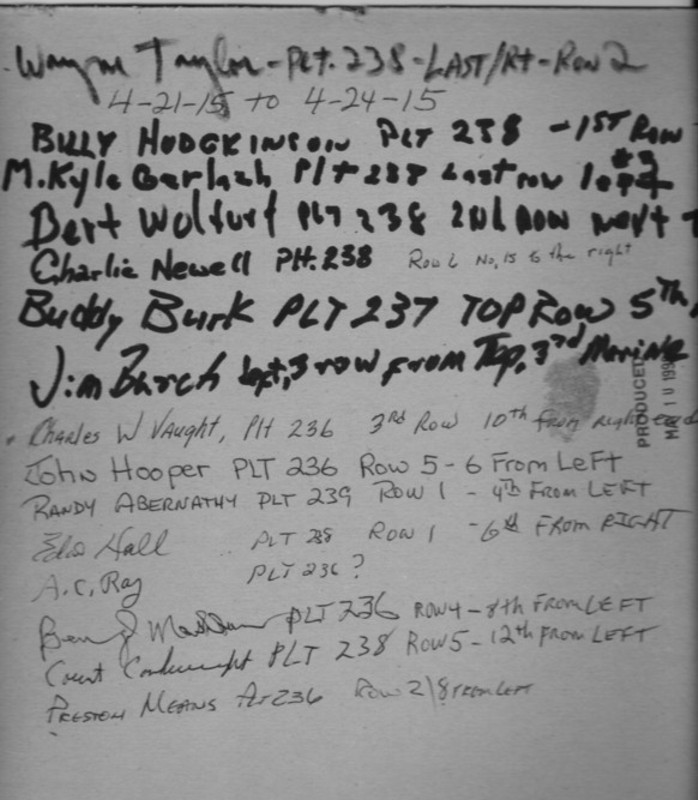 Wayne Taylor - PLt. 238 - LAST/Rt - Row 2
4-21-15 to 4-24-15
BILLY HODGKINSON PLT 238 - 1ST ROW
#3
M. Kyle Gerlach Plt 238 Last row left
Bert Wolfurt Plt 238 2nd Row next
Charlie Newell PLt. 238 Row 2 No, 15 to the right
Buddy Burk PLT 237 TOP Row 5th
Jim Burch left, 3 row from Top, 3rd Marine
PRODUCED
Charles W Vaught, Plt 236 3rd Row 10th from right end
John Hooper PLT 236 Row 5-6 From Left
RANDY ABERNATHY PLT 239 ROW 1 - 4th FROM LEFT
Hall PLT 238 ROW 1 - 6th FROM RIGHT
A.C. Ray PLT 236?
PLT 236 ROW 4 - 8th FROM LEFT
PLT 238 ROW 5 - 12th FROM LEFT
PRESTON MEANS PLT 236 ROW 2/8 FROM LEFT